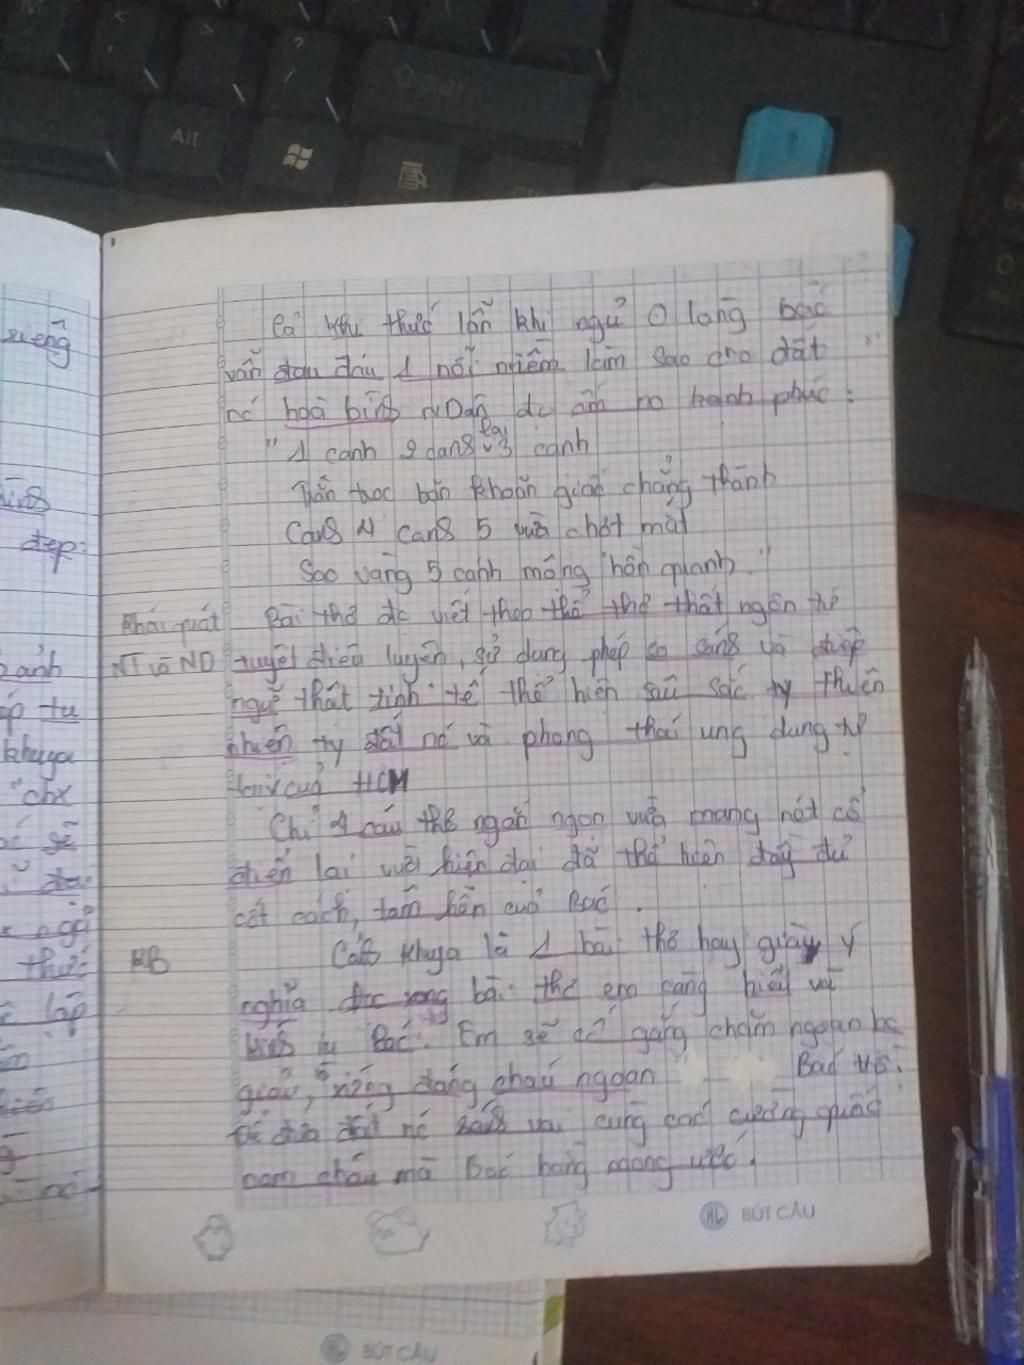 cả khi thức lẫn khi ngủ lòng bác
vẫn đau đáu 1 nỗi niềm làm sao cho đất
nc hoà bình nDân đc ấm no hạnh phúc :
"1 canh 2 cang lại 3 canh
Trằn trọc băn khoăn giấc chẳng thành
Canh 4 canh 5 vừa chợt mắt
Sao vàng 5 cánh mộng hồn quanh."
Khái quát Bài thơ đc viết theo thể thơ thất ngôn tứ
NT và ND tuyệt điêu luyện, sử dụng phép so sánh và điệp
ngữ thật tinh tế thể hiện sâu sắc ty thiên
nhiên ty đất nc và phong thái ung dung tự
của HCM
Chỉ 4 câu thơ ngắn ngọn vừa mang nét cổ
điển lại vừa hiện đại đã thể hiện đầy đủ
cốt cách, tâm hồn của Bác .
KB Cảnh khuya là 1 bài thơ hay giàu ý
nghĩa đọc xong bài thơ em càng hiểu và
Bác. Em sẽ cố gắng chăm ngoan học
giỏi, xứng đáng cháu ngoan Bác Hồ.
đất nc sánh vai cùng các cường quốc
năm châu mà Bác hằng mong ước.
BÚT CÂU
riêng
đẹp:
cảnh
khuya
thức
lập
nc
BÚT CÂU
Alt